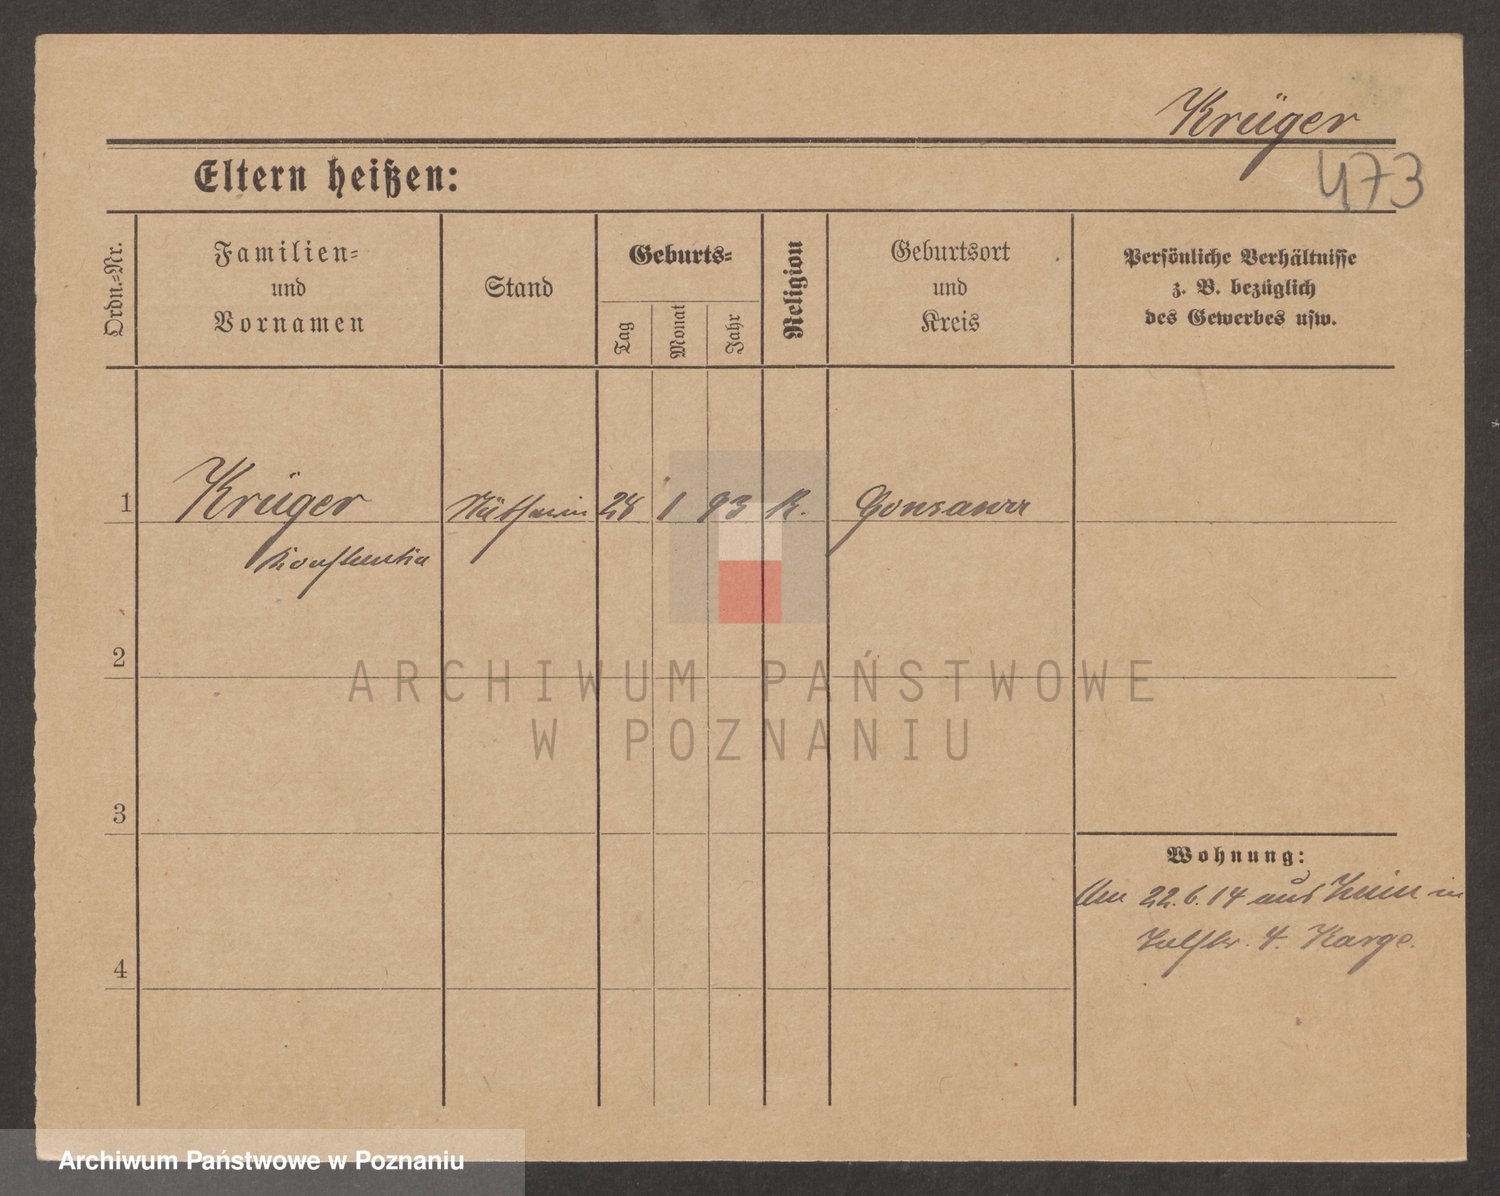 Krüger
473
Eltern heißen:
Ordn.-Nr.
Familien-
und
Vornamen
Stand
Geburts-
Tag
Monat
Jahr
Religion
Geburtsort
und
Kreis
Persönliche Verhältnisse
z. B. bezüglich
des Gewerbes usw.
1 Krüger 28 1 93 K. Gonsawa
Konstantia
2
ARCHIWUM PAŃSTWOWE
W POZNANIU
3
Wohnung:
22.6.14 aus in
4. Karge.
4
Archiwum Państwowe w Poznaniu